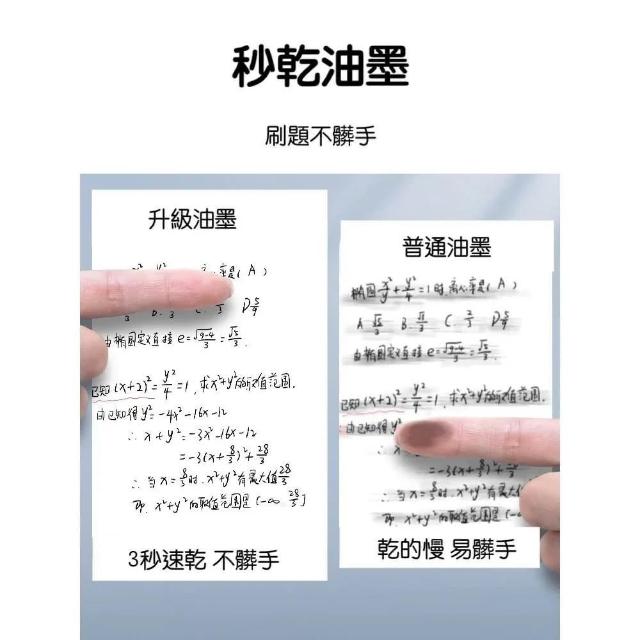 秒乾油墨
刷題不髒手
升級油墨
A)
D √5/9
由椭圆定义直接 e=√(9-4)/3=√5/3.
已知(x+2)²=y²/4=1,求x²+y²的取值范围.
由已知得y²=-4x²-16x-12
∴x+y²=-3x²-16x-12
=-3(x+8/3)²+28/3
∴当x=8/3时,x²+y²有最大值28/3
即,x²+y²的取值范围是(-∞ 28/3]
3秒速乾 不髒手
普通油墨
椭圆x²/9+y²/4=1时,离心率是( A )
A √5/3 B.√5/3 C 2/3 D √5/9
由椭圆定义直接 e=√(9-4)/3=√5/3.
已知(x+2)²=y²/4=1,求x²+y²的取值范围.
由已知得y²
=-3(x+8/3)²+28/3
∴当x=8/3时,x²+y²有最大值
即,x²+y²的取值范围是(-∞
乾的慢 易髒手